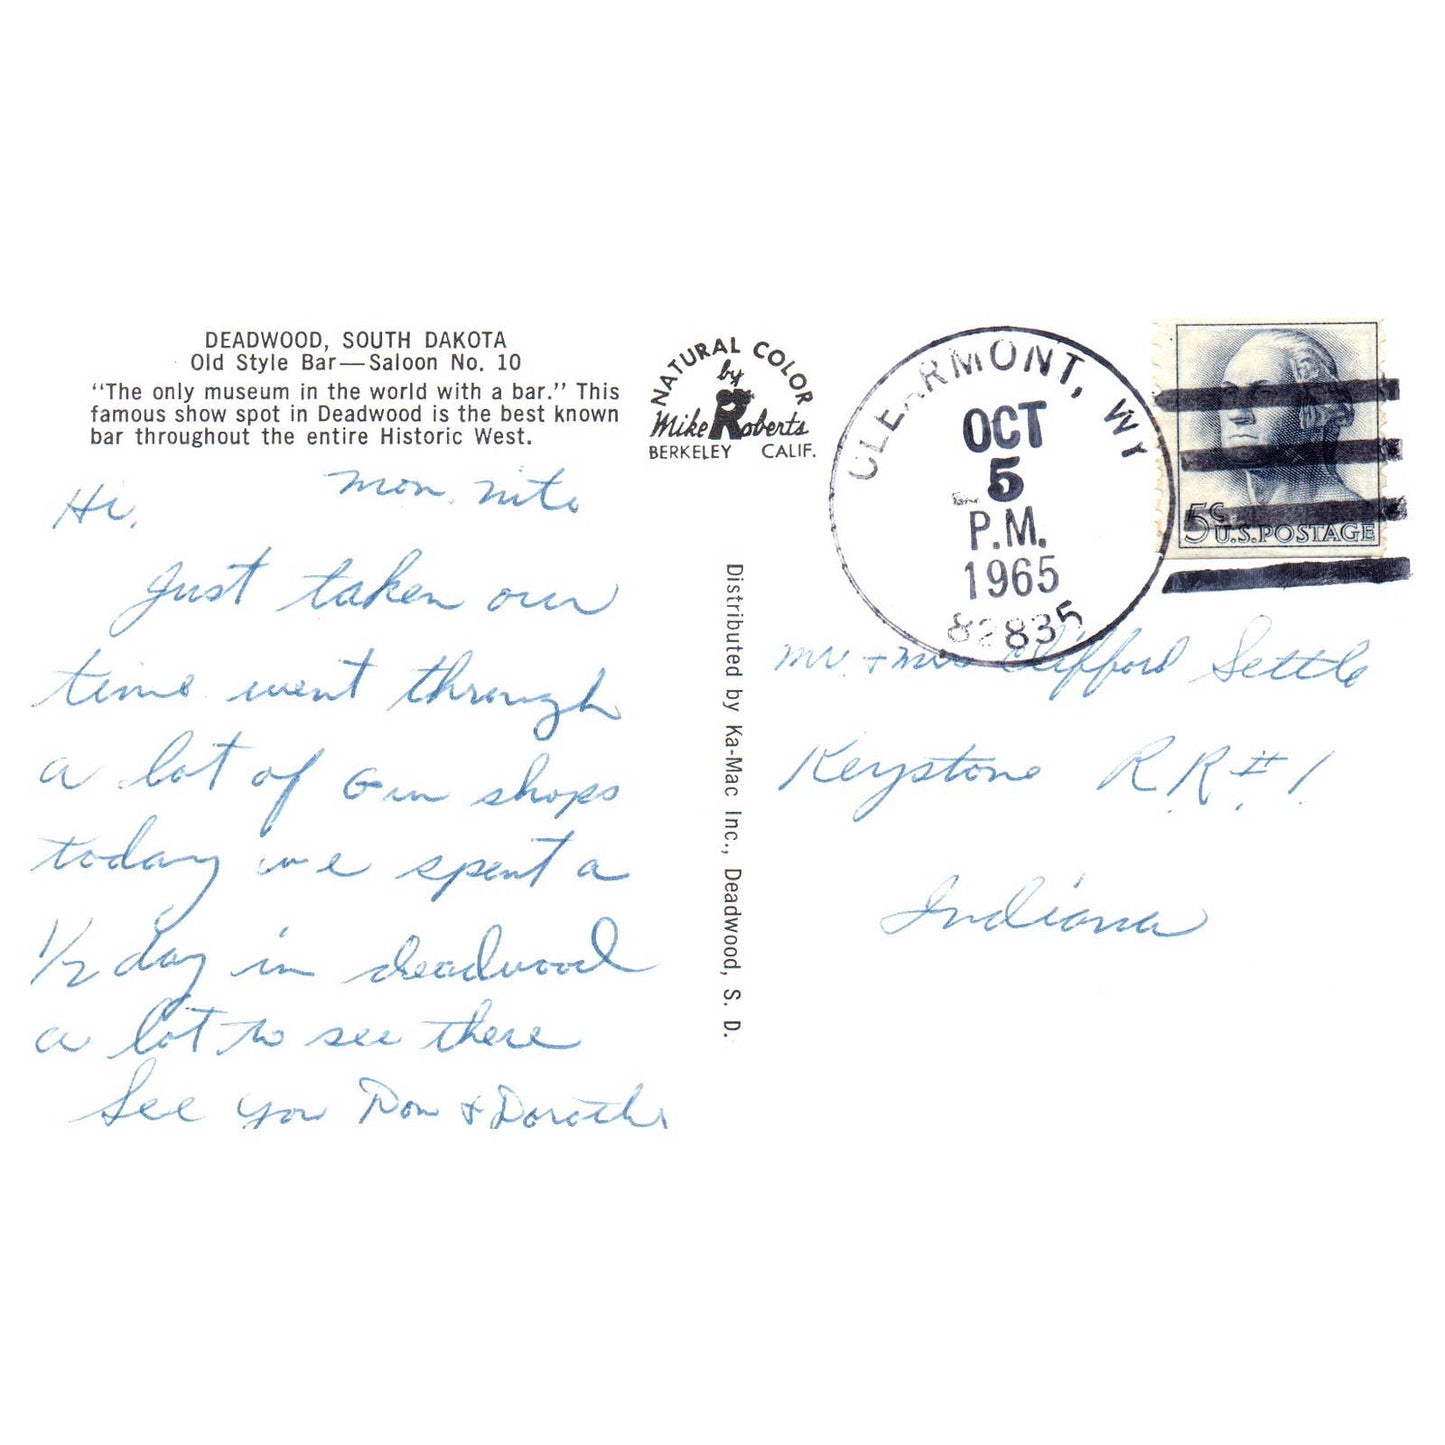 DEADWOOD, SOUTH DAKOTA
Old Style Bar—Saloon No. 10
"The only museum in the world with a bar." This
famous show spot in Deadwood is the best known
bar throughout the entire Historic West.
NATURAL COLOR
by
Mike Roberts
BERKELEY CALIF.
CLEARMONT, WY
OCT
5
P.M.
1965
82835
5c
U.S. POSTAGE
Mon. nite
Hi,
Just taken our
time went through
a lot of Gun shops
today we spent a
1/2 day in deadwood
a lot to see there
See you Don & Doroth
Distributed by Ka-Mac Inc., Deadwood, S. D.
Mr + Mrs Clifford Settle
Keystone R.R. # 1
Indiana